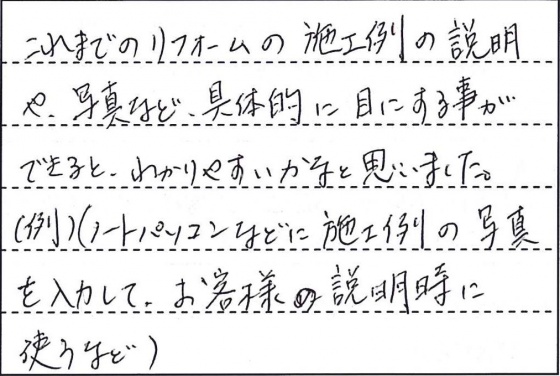 これまでのリフォームの施工例の説明
や、写真など、具体的に目にする事が
できると、わかりやすいかなと思いました。
(例)(ノートパソコンなどに施工例の写真
を入力して、お客様の説明時に
使うなど)